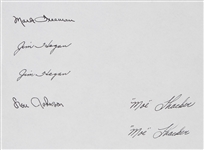 Mark Freeman
Jim Hogan
Jim Hogan
Don Johnson
"Moe" Thacker
"Moe" Thacker